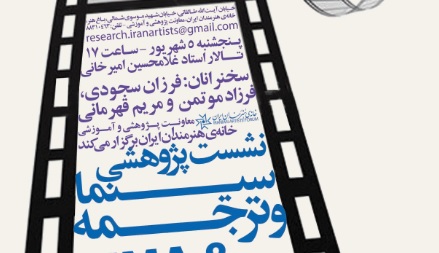 خیابان آیت‌الله طالقانی، خیابان شهید موسوی شمالی، باغ هنر
خانه‌ی هنرمندان ایران، معاونت پژوهشی و آموزشی - تلفن:
research.iranartists@gmail.com
پنجشنبه ۵ شهریور - ساعت ۱۷
تالار استاد غلامحسین امیرخانی
سخنرانان: فرزان سجودی،
فرزاد موتمن و مریم قهرمانی
معاونت پژوهشی و آموزشی
خانه‌ی هنرمندان ایران برگزار می‌کند
نشست پژوهشی
سینما
و ترجمه